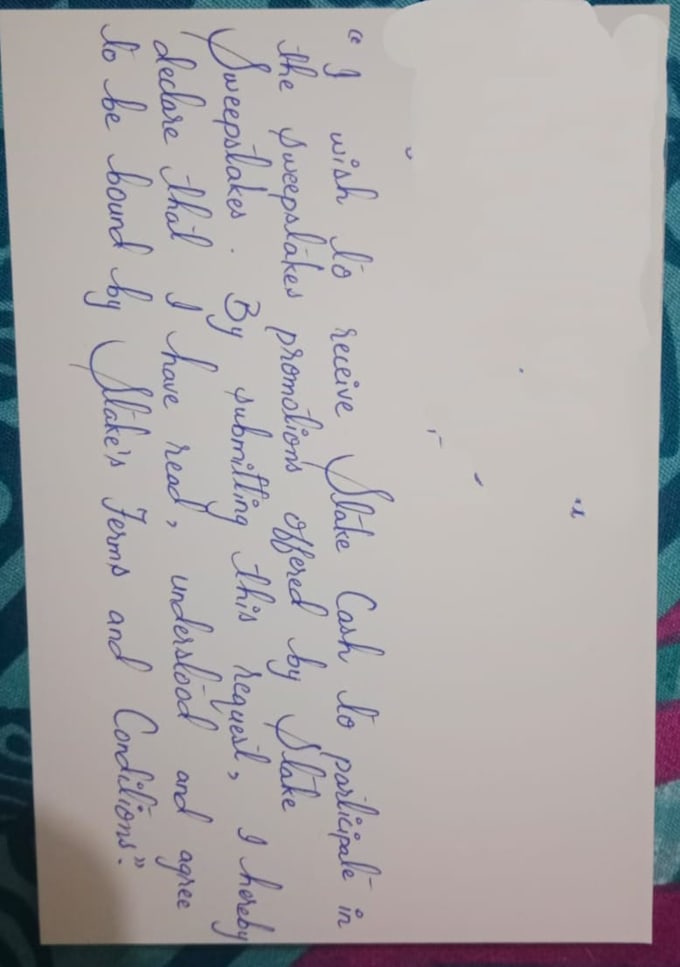 “I wish to receive Stake Cash to participate in
the sweepstakes promotions offered by Stake
Sweepstakes. By submitting this request, I hereby
declare that I have read, understood and agree
to be bound by Stake's Terms and Conditions”.